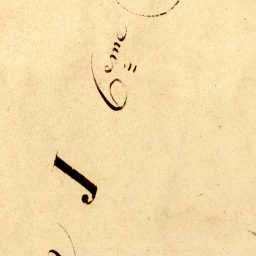 6eme
J